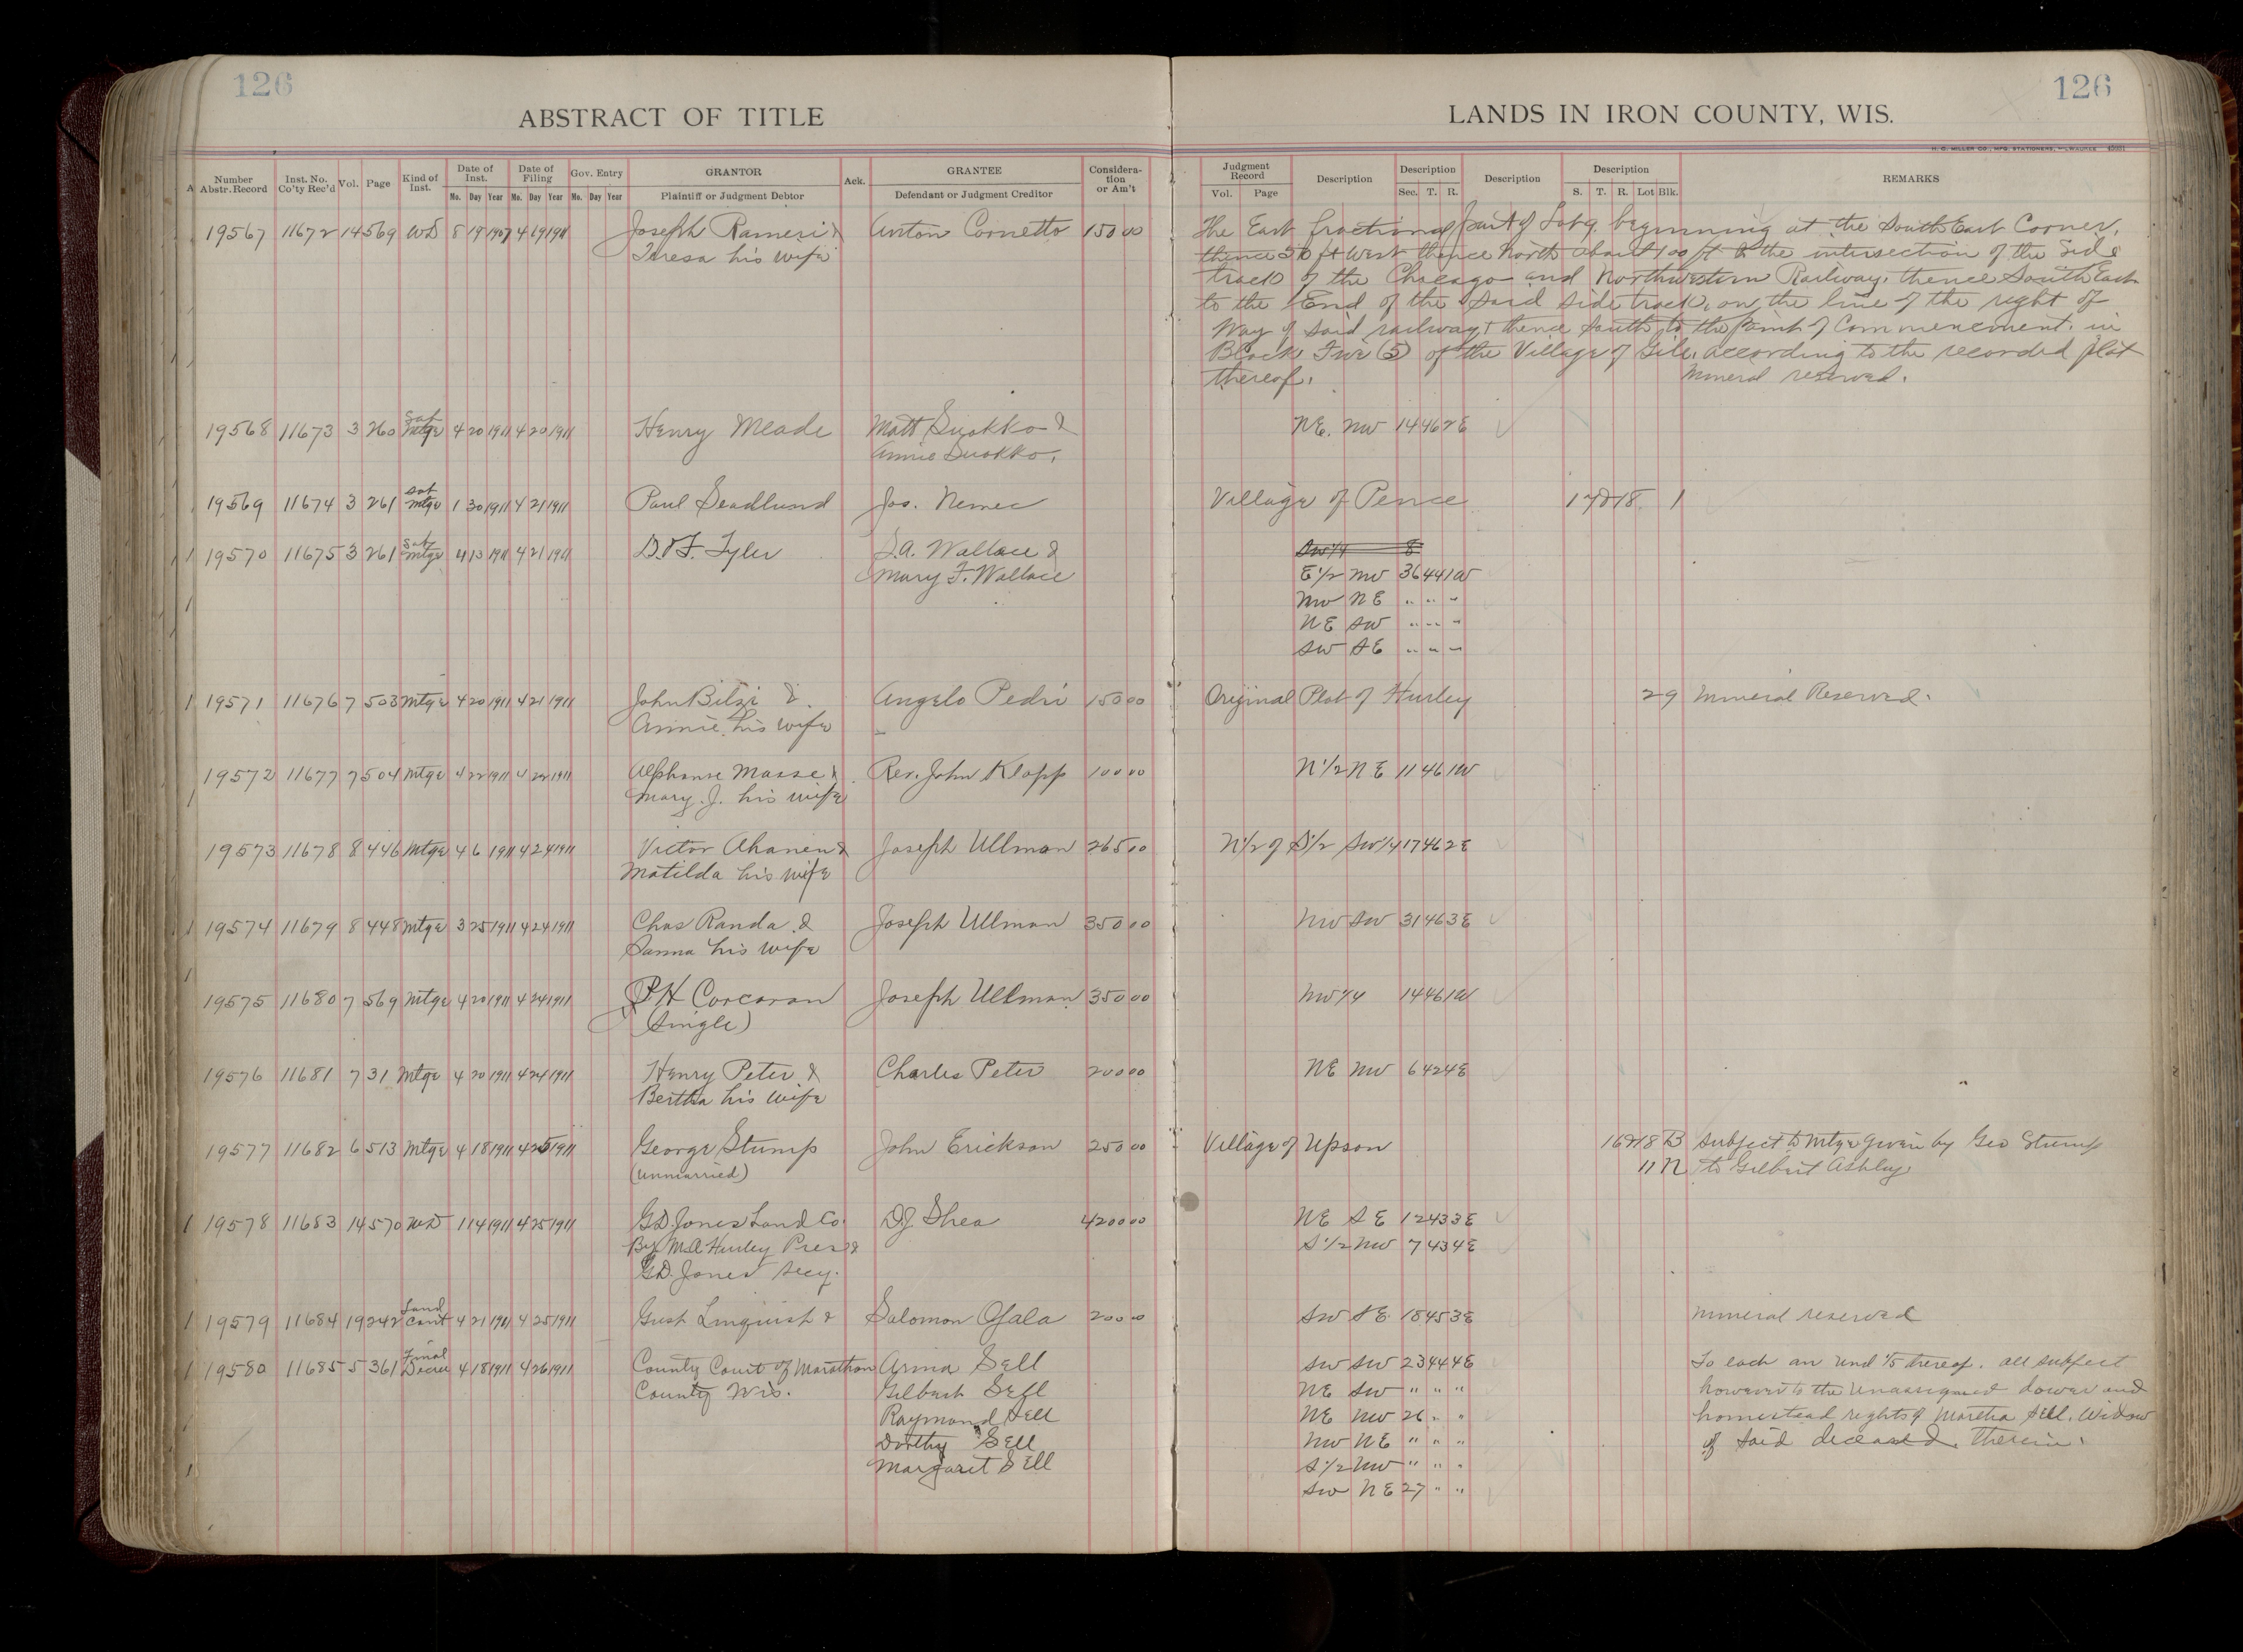 126
126
ABSTRACT OF TITLE
LANDS IN IRON COUNTY, WIS.
H. C. MILLER CO., MFG. STATIONERS, MILWAUKEE
Number Abstr. Record Inst. No. Co'ty Rec'd Vol. Page Kind of Inst. Date of Inst. Mo. Day Year Date of Filing Mo. Day Year Gov. Entry Mo. Day Year GRANTOR Plaintiff or Judgment Debtor Ack. GRANTEE Defendant or Judgment Creditor Considera-tion or Am't
Judgment Record Vol. Page Description Description Sec. T. R. Description Description S. T. R. Lot Blk. REMARKS
19567 11672 14 569 WD 8 19 1907 4 19 1911 Joseph Rameri & Anton Cornetto 150 00 The East fractional part of Lot 9. beginning at the South East Corner,
Teresa his wife thence 50 ft West thence North about 100 ft to the intersection of the Side
track of the Chicago and Northwestern Railway, thence South East
to the End of the said side track, on the line of the right of
Way of said railway, thence South to the point of Commencement. in
Block Five (5) of the Village of Gile, according to the recorded plat
thereof. Mineral reserved.
19568 11673 3 260 Sat Mtge 4 20 1911 4 20 1911 Henry Meade Matt Suokko & NE. NW 14 46 2E
Annie Suokko.
19569 11674 3 261 Sat Mtge 1 30 1911 4 21 1911 Paul Seadlund Jos. Nemec Village of Pence 17&18 1
19570 11675 3 261 Sat Mtge 4 13 1911 4 21 1911 D.F. Tyler S.A. Wallace & SW1/4 8
Mary F. Wallace E1/2 NW 36 44 1W
NW NE " " "
NE SW " " "
SW SE " " "
19571 11676 7 503 Mtge 4 20 1911 4 21 1911 John Bilzi & Angelo Pedri 150 00 Original Plat of Hurley 29 Mineral Reserved.
Annie his wife
19572 11677 7 504 Mtge 4 22 1911 4 22 1911 Alphonse Masse & Rev. John Klopp 100 00 N1/2 NE 11 46 1W
Mary J. his wife
19573 11678 8 446 Mtge 4 6 1911 4 24 1911 Victor Ahanen & Joseph Ullman 265 00 N1/2 of S1/2 SW1/4 17 46 2E
Matilda his wife
19574 11679 8 448 Mtge 3 25 1911 4 24 1911 Chas Randa & Joseph Ullman 350 00 NW SW 31 46 3E
Sanna his wife
19575 11680 7 569 Mtge 4 20 1911 4 24 1911 P H Corcoran Joseph Ullman 350 00 NW1/4 14 46 1W
(Single)
19576 11681 7 31 Mtge 4 20 1911 4 24 1911 Henry Peter & Charles Peter 200 00 NE NW 6 42 4E
Bertha his wife
19577 11682 6 513 Mtge 4 18 1911 4 25 1911 George Stump John Erickson 250 00 Village of Upson 16&18 B Subject to Mtge given by Geo Stump
(Unmarried) 11 N to Gilbert Ashley.
19578 11683 14 570 WD 1 14 1911 4 25 1911 G.D. Jones Land Co. D.J. Shea 4200 00 NE SE 12 43 3E
By M.A. Hurley Pres & S1/2 NW 7 43 4E
G.D. Jones Secy.
19579 11684 19 242 Land Cont 4 21 1911 4 25 1911 Gust Linquist & Salomon Ojala 200 00 SW SE 18 45 3E Mineral reserved
19580 11685 5 361 Final Decree 4 18 1911 4 26 1911 County Court of Marathon Arina Sell SW SW 23 44 4E To each an und 1/5 thereof. all subject
County Wis. Gilbert Sell NE SW " " " however to the Unassigned dower and
Raymond Sell NE NW 26 " " homestead rights of Martha Sell, Widow
Dorthy Sell NW NE " " " of said deceased, therein.
Margaret Sell S1/2 NW " " "
SW NE 27 " "